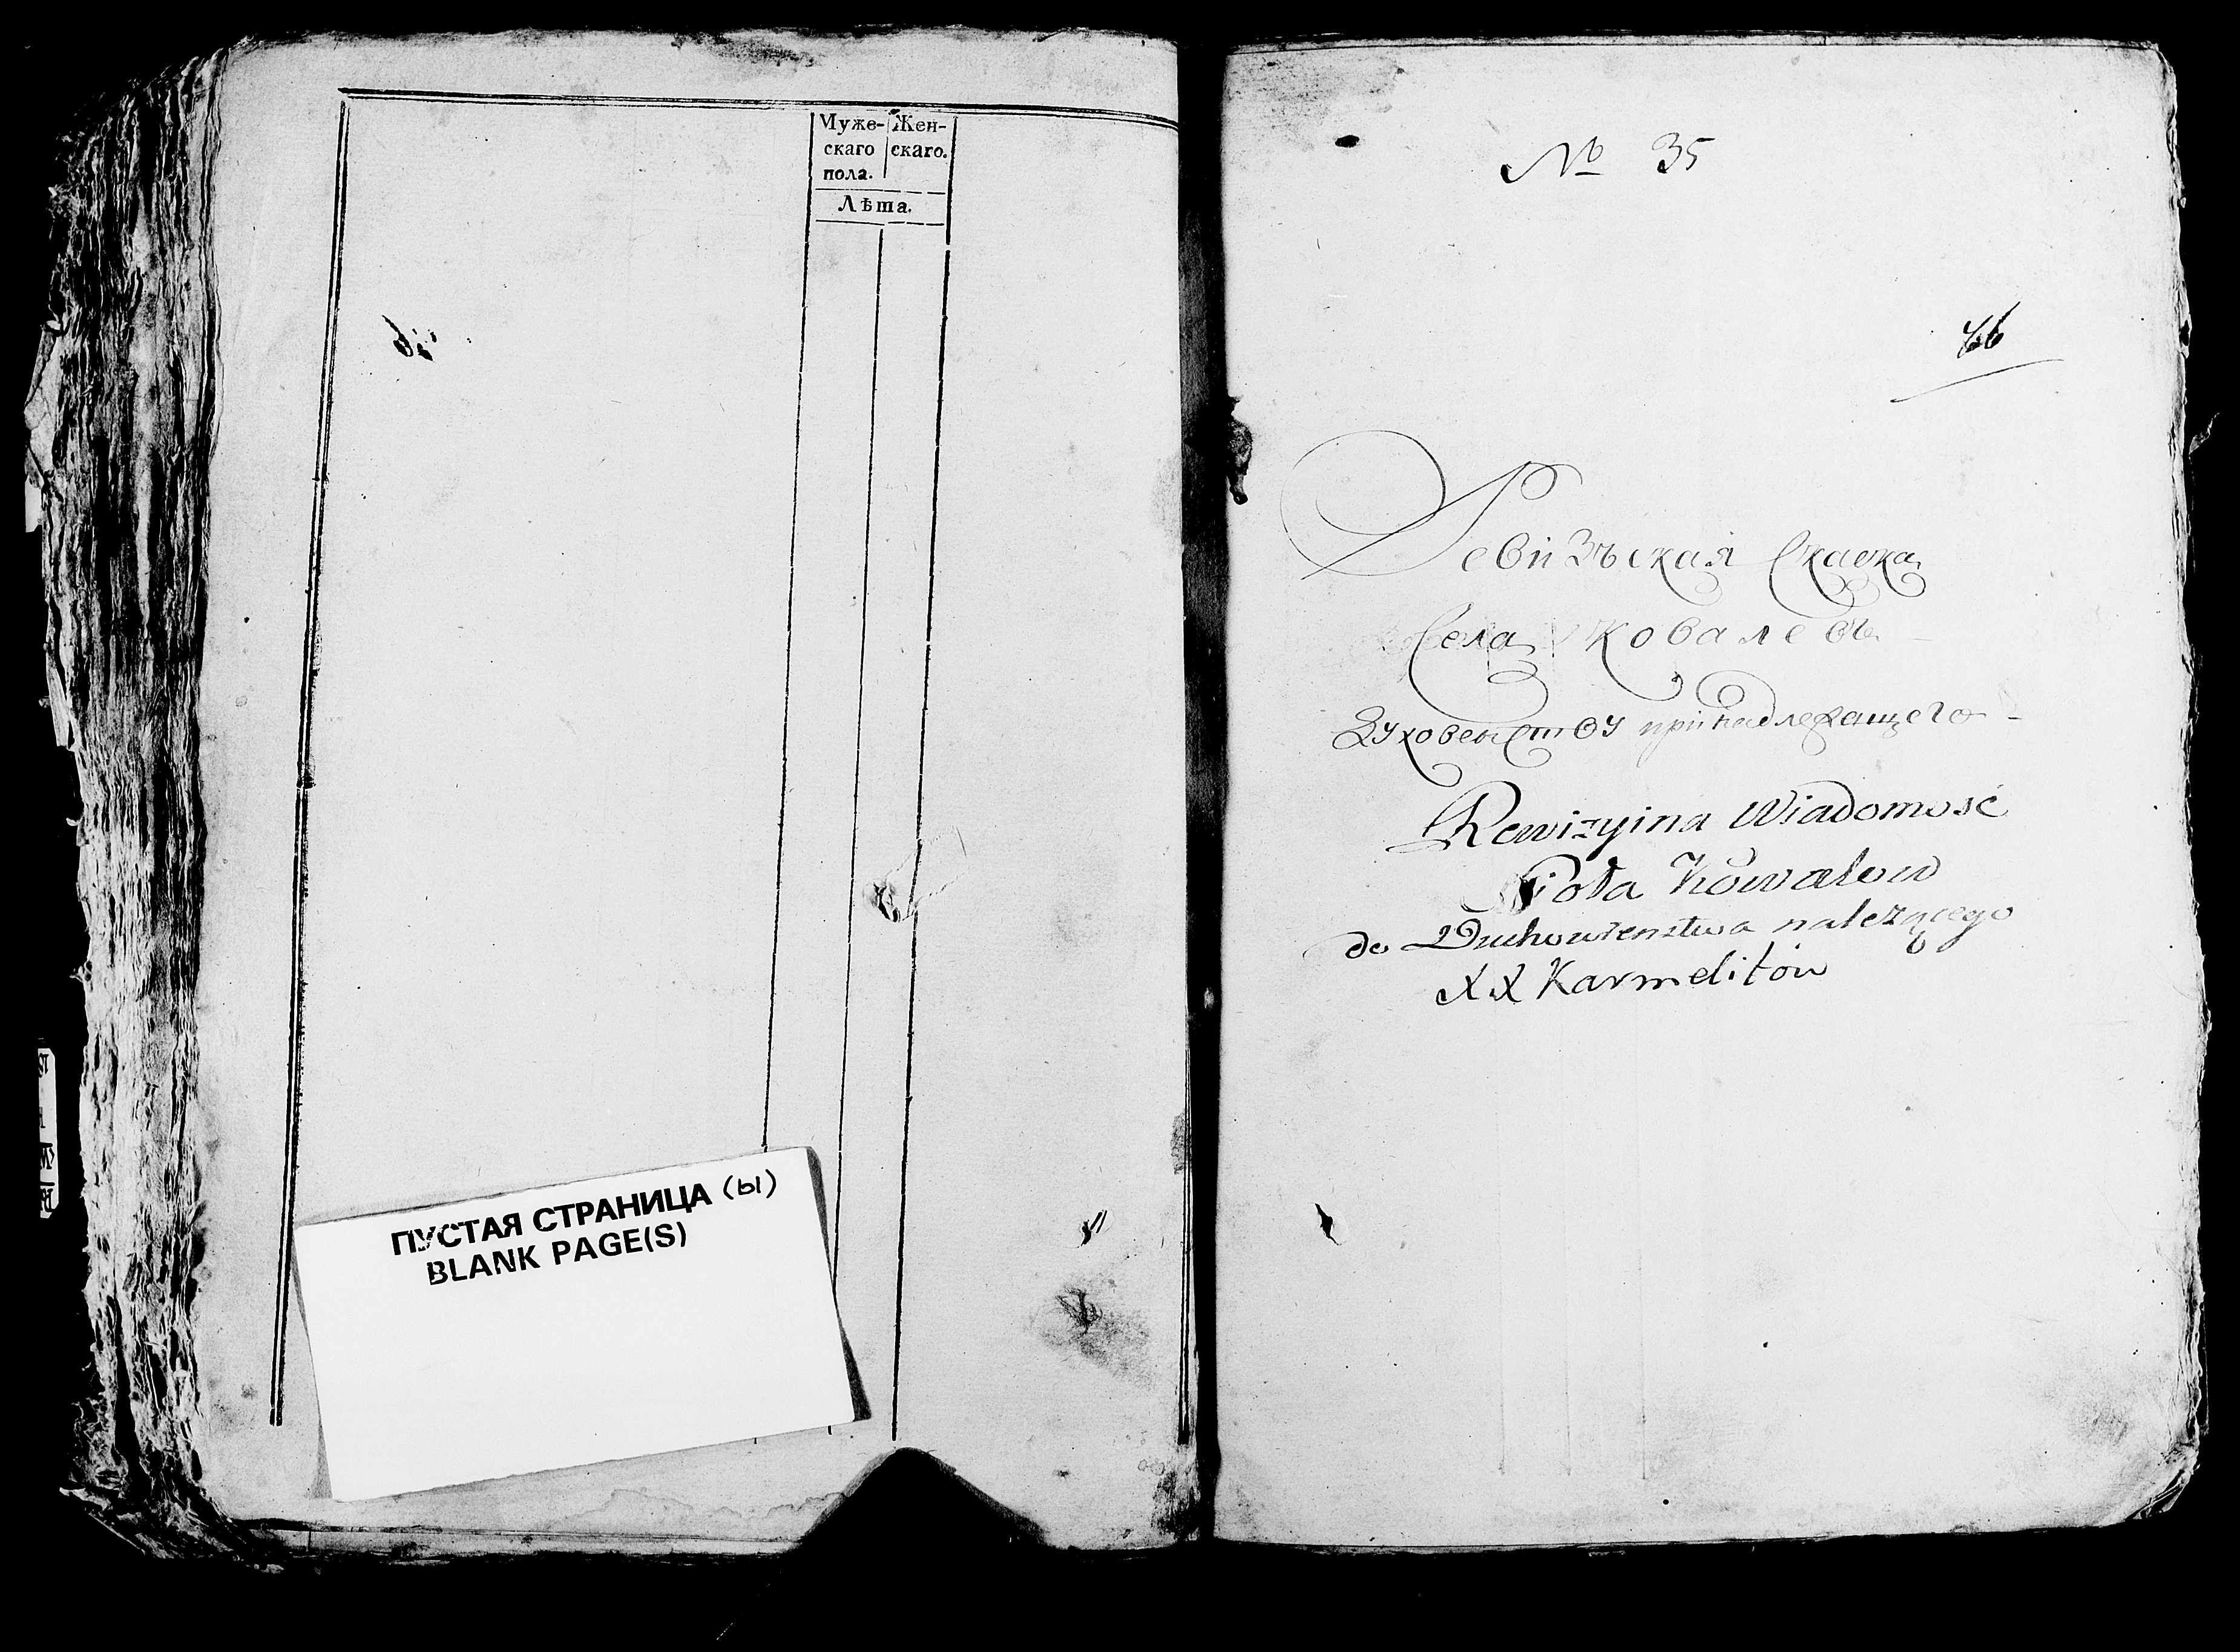 Муже- Жен-
скаго скаго.
пола.
Лѣта.
ПУСТАЯ СТРАНИЦА (ы)
BLANK PAGE(S)
№ 35
Ревизъская Скаска
Села Ковалевъ
Духовенству принадлежащего
Rewizyina Wiadomość
Sioła Kowalow
do Duchowienstwa należącego
XX Karmelitow